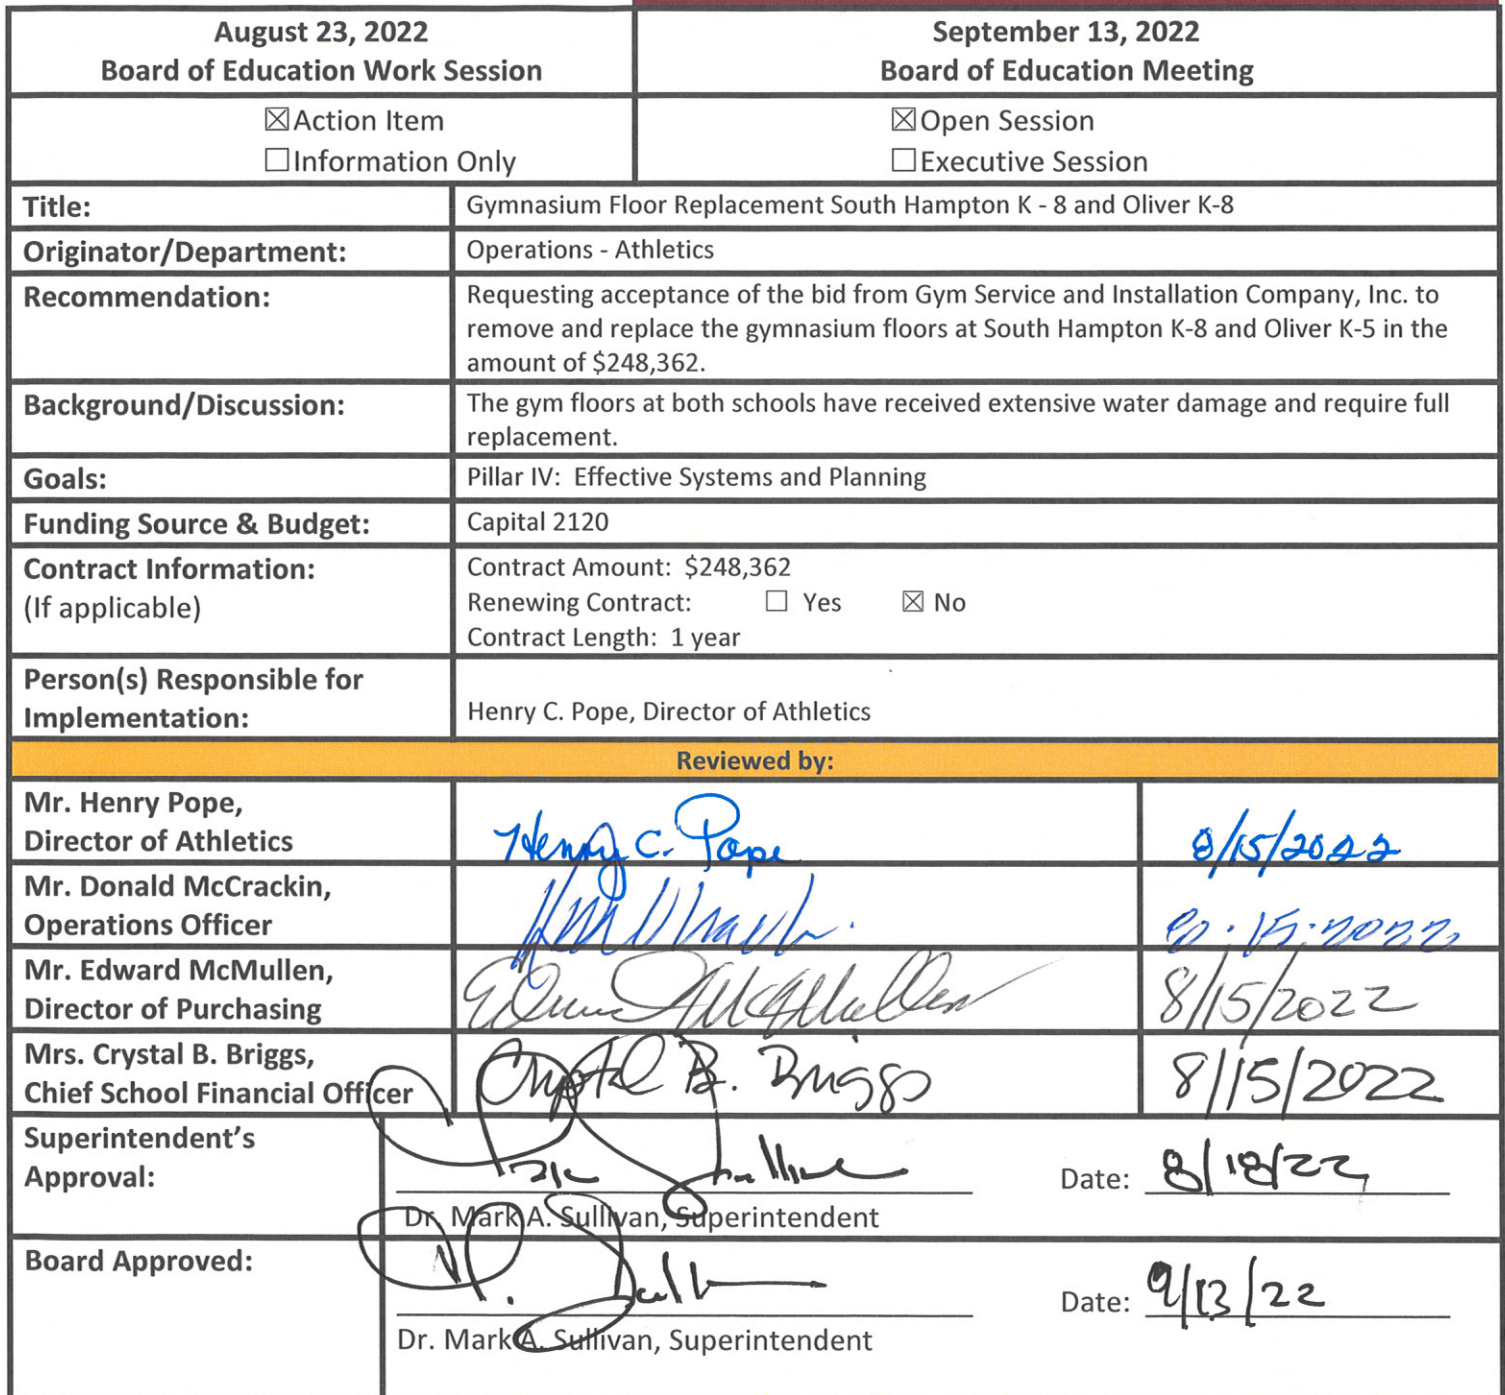 August 23, 2022
Board of Education Work Session
September 13, 2022
Board of Education Meeting
☒Action Item
☐Information Only
☒Open Session
☐Executive Session
Title:
Gymnasium Floor Replacement South Hampton K - 8 and Oliver K-8
Originator/Department:
Operations - Athletics
Recommendation:
Requesting acceptance of the bid from Gym Service and Installation Company, Inc. to
remove and replace the gymnasium floors at South Hampton K-8 and Oliver K-5 in the
amount of $248,362.
Background/Discussion:
The gym floors at both schools have received extensive water damage and require full
replacement.
Goals:
Pillar IV:  Effective Systems and Planning
Funding Source & Budget:
Capital 2120
Contract Information:
(If applicable)
Contract Amount:  $248,362
Renewing Contract: ☐ Yes ☒ No
Contract Length:  1 year
Person(s) Responsible for
Implementation:
Henry C. Pope, Director of Athletics
Reviewed by:
Mr. Henry Pope,
Director of Athletics
Henry C. Pope
8/15/2022
Mr. Donald McCrackin,
Operations Officer
Mr. Edward McMullen,
Director of Purchasing
McMullen
8/15/2022
Mrs. Crystal B. Briggs,
Chief School Financial Officer
Crystal B. Briggs
8/15/2022
Superintendent's
Approval:
Date: 8/18/22
Dr. Mark A. Sullivan, Superintendent
Board Approved:
Date: 9/13/22
Dr. Mark A. Sullivan, Superintendent